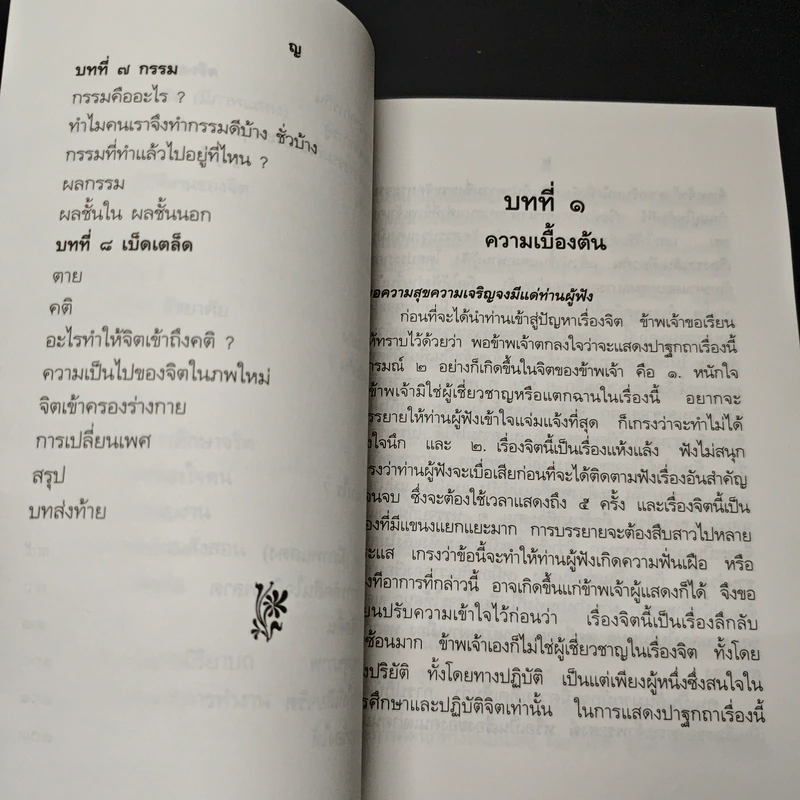 ญ
บทที่ ๗ กรรม
กรรมคืออะไร ?
ทำไมคนเราจึงทำกรรมดีบ้าง ชั่วบ้าง
กรรมที่ทำแล้วไปอยู่ที่ไหน ?
ผลกรรม
ผลชั้นใน ผลชั้นนอก
บทที่ ๘ เบ็ดเตล็ด
ตาย
คติ
อะไรทำให้จิตเข้าถึงคติ ?
ความเป็นไปของจิตในภพใหม่
จิตเข้าครองร่างกาย
การเปลี่ยนเพศ
สรุป
บทส่งท้าย
บทที่ ๑
ความเบื้องต้น
อความสุขความเจริญจงมีแด่ท่านผู้ฟัง
ก่อนที่จะได้นำท่านเข้าสู่ปัญหาเรื่องจิต ข้าพเจ้าขอเรียน
ให้ทราบไว้ด้วยว่า พอข้าพเจ้าตกลงใจว่าจะแสดงปาฐกถาเรื่องนี้
ารมณ์ ๒ อย่างก็เกิดขึ้นในจิตของข้าพเจ้า คือ ๑. หนักใจ
ข้าพเจ้ามิใช่ผู้เชี่ยวชาญหรือแตกฉานในเรื่องนี้ อยากจะ
รรยายให้ท่านผู้ฟังเข้าใจแจ่มแจ้งที่สุด ก็เกรงว่าจะทำไม่ได้
งใจนึก และ ๒. เรื่องจิตนี้เป็นเรื่องแห้งแล้ง ฟังไม่สนุก
กรงว่าท่านผู้ฟังจะเบื่อเสียก่อนที่จะได้ติดตามฟังเรื่องอันสำคัญ
จนจบ ซึ่งจะต้องใช้เวลาแสดงถึง ๕ ครั้ง และเรื่องจิตนี้เป็น
องที่มีแขนงแยกแยะมาก การบรรยายจะต้องสืบสาวไปหลาย
ระแส เกรงว่าข้อนี้จะทำให้ท่านผู้ฟังเกิดความฟั่นเฝือ หรือ
งทีอาการที่กล่าวนี้ อาจเกิดขึ้นแก่ข้าพเจ้าผู้แสดงก็ได้ จึงขอ
ยนปรับความเข้าใจไว้ก่อนว่า เรื่องจิตนี้เป็นเรื่องลึกลับ
ซ้อนมาก ข้าพเจ้าเองก็ไม่ใช่ผู้เชี่ยวชาญในเรื่องจิต ทั้งโดย
งปริยัติ ทั้งโดยทางปฏิบัติ เป็นแต่เพียงผู้หนึ่งซึ่งสนใจใน
รศึกษาและปฏิบัติจิตเท่านั้น ในการแสดงปาฐกถาเรื่องนี้